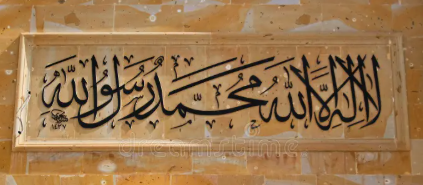 لا إله إلا الله محمد رسول الله
١٤٣٧
dreamstime